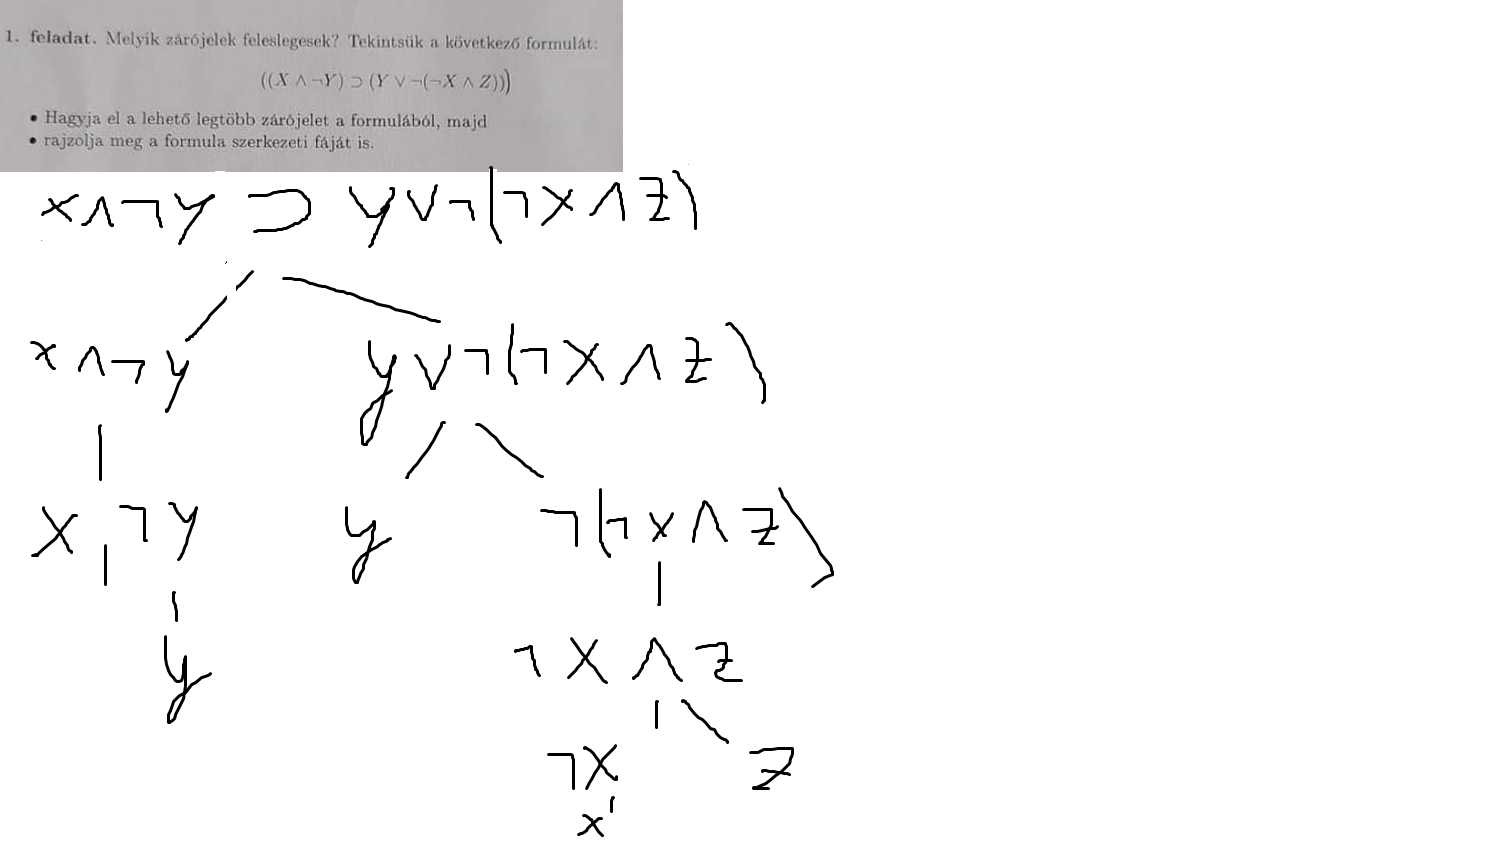 1. feladat. Melyik zárójelek feleslegesek? Tekintsük a következő formulát:
((X ∧ ¬Y) ⊃ (Y ∨ ¬(¬X ∧ Z)))
• Hagyja el a lehető legtöbb zárójelet a formulából, majd
• rajzolja meg a formula szerkezeti fáját is.
x∧¬y ⊃ y∨¬(¬x∧z)
x∧¬y y∨¬(¬x∧z)
x ¬y y ¬(¬x∧z)
y ¬x∧z
¬x z
x